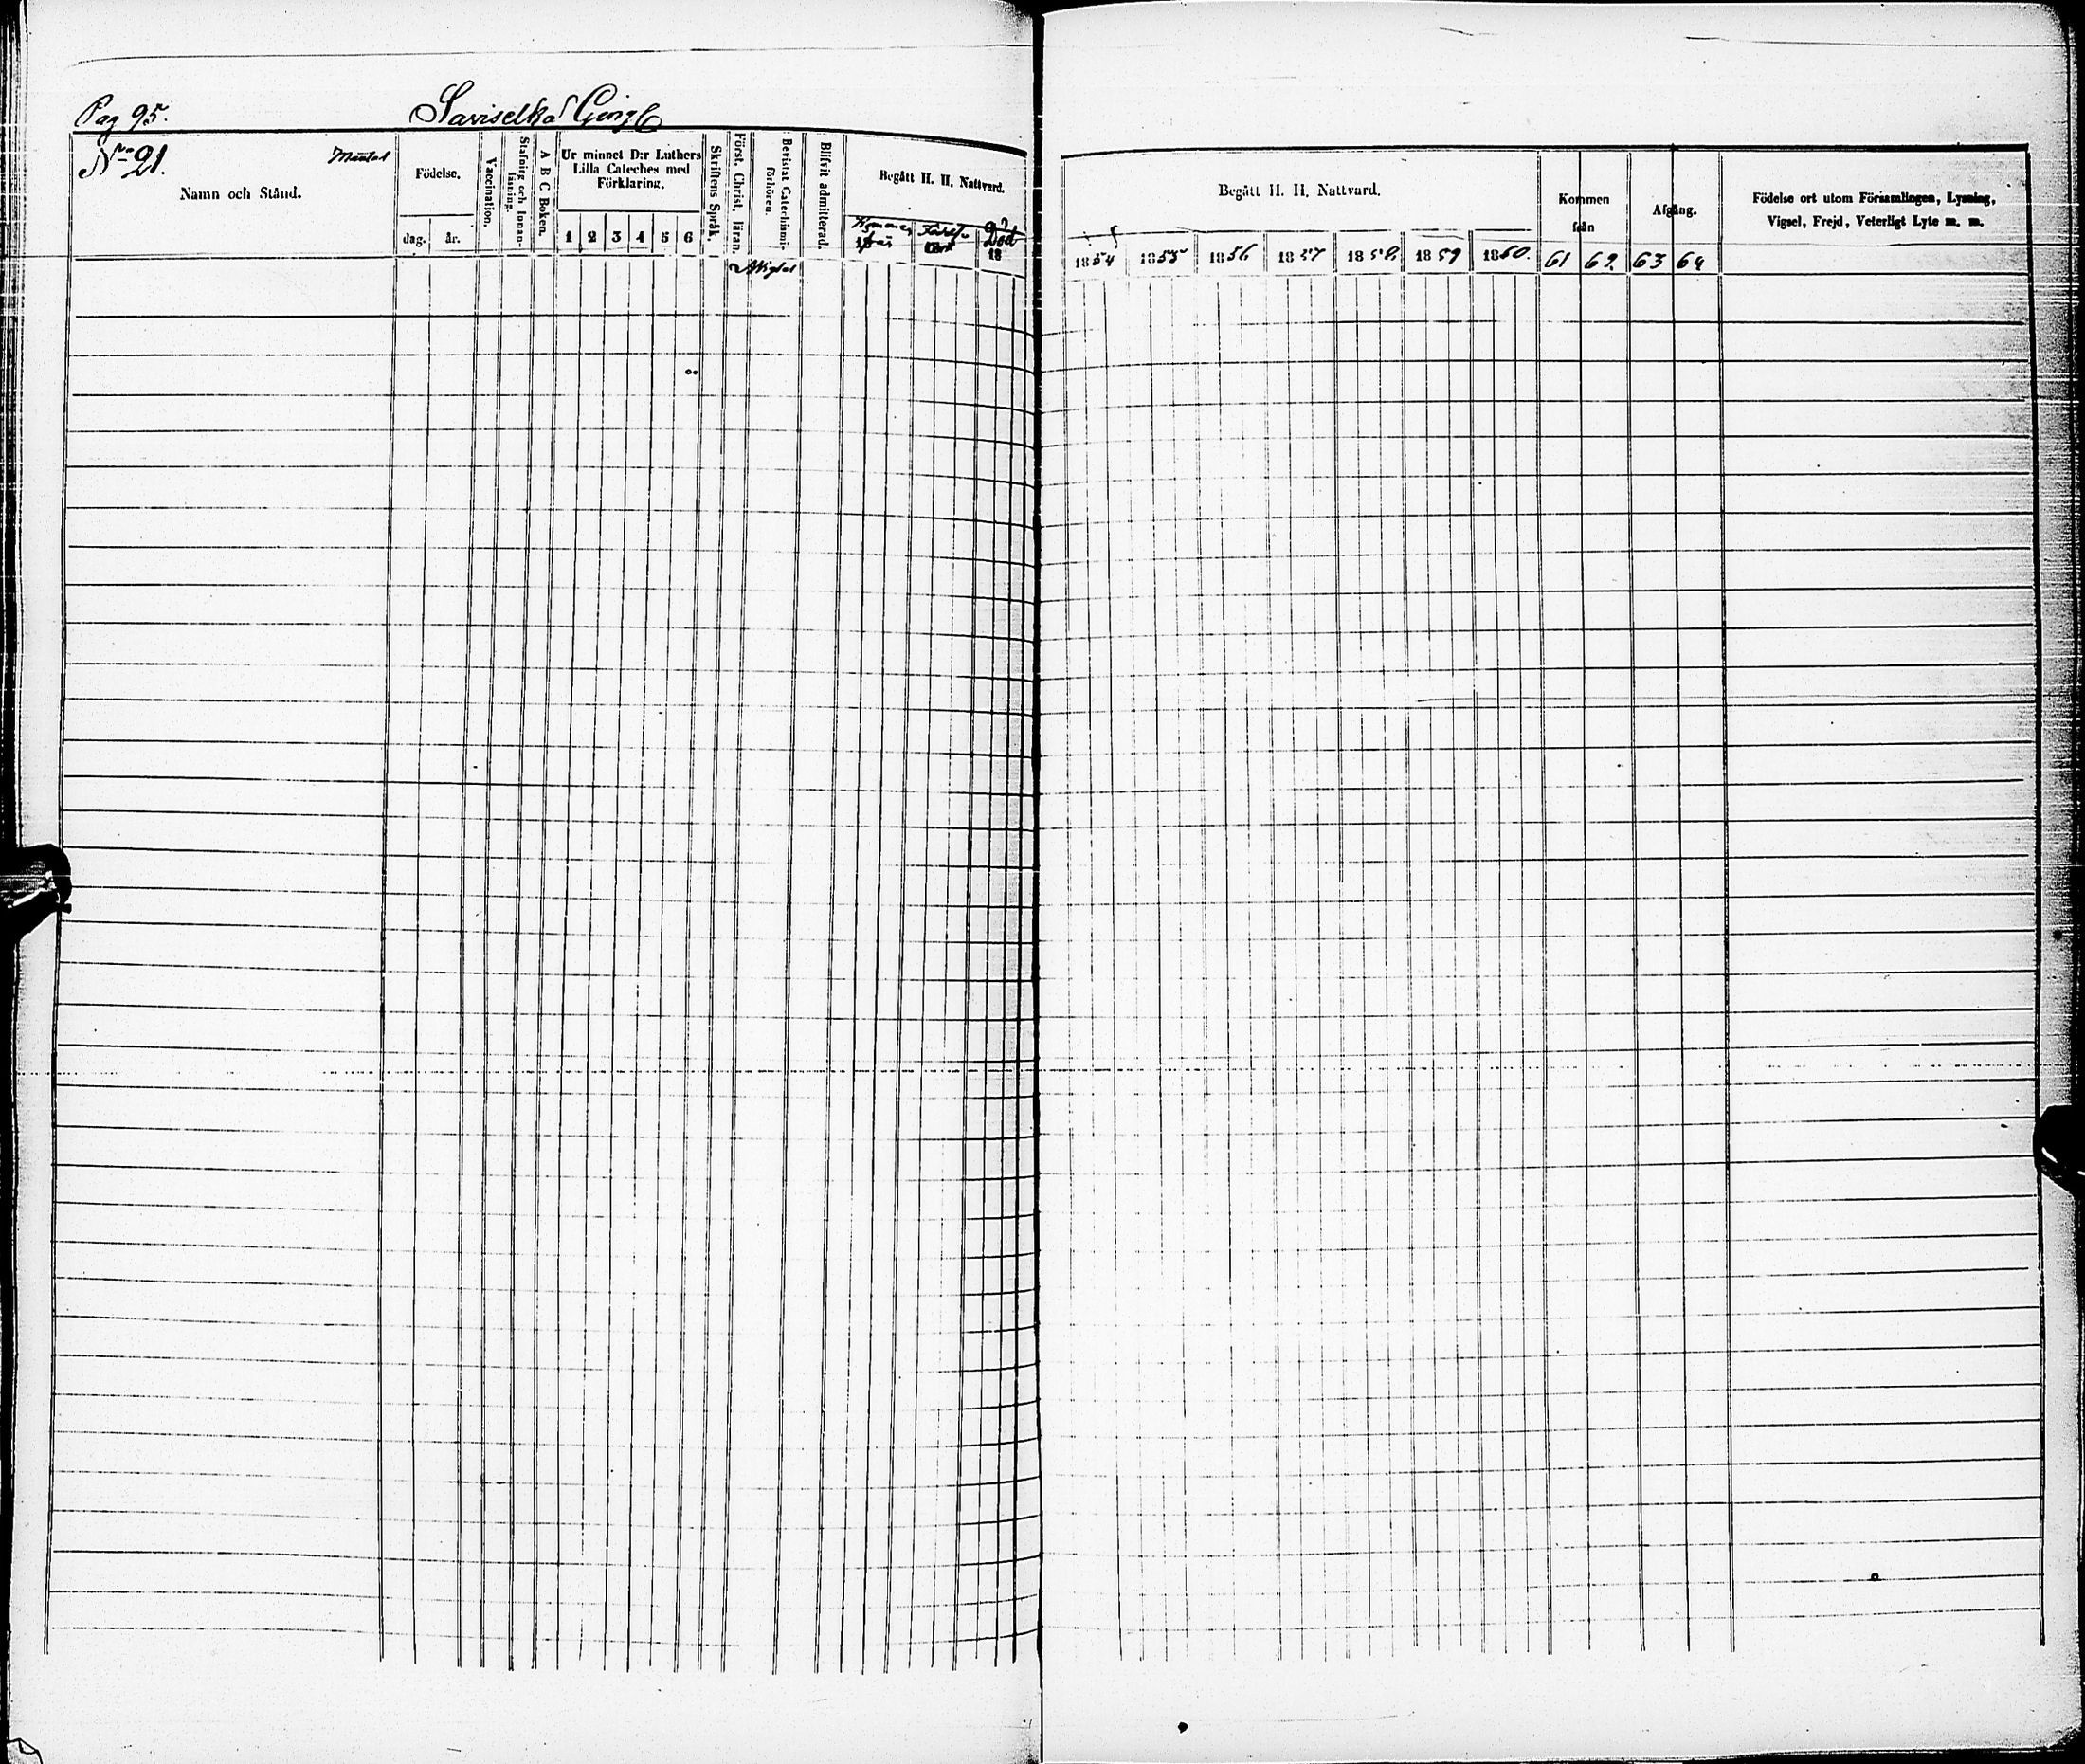 Pag 95. Saviselkä
No 21. Mantal
Namn och Stånd.
Födelse.
dag. år.
Vaccination.
Stafning och Innan-
läsning.
A B C Boken.
Ur minnet D:r Luthers
Lilla Cateches med
Förklaring.
1 2 3 4 5 6
Skriftens Språk.
Först. Christ. läran.
Bevistat Catechismi-
förhören.
Blifvit admitterad.
Begått H. H. Nattvard.
Död
18
Wigter
Begått H. H. Nattvard.
1854 1855 1856 1857 1858 1859 1860.
Kommen
från
61 62.
Afgång.
63 64
Födelse ort utom Församlingen, Lysning,
Vigsel, Frejd, Veterligt Lyte m. m.